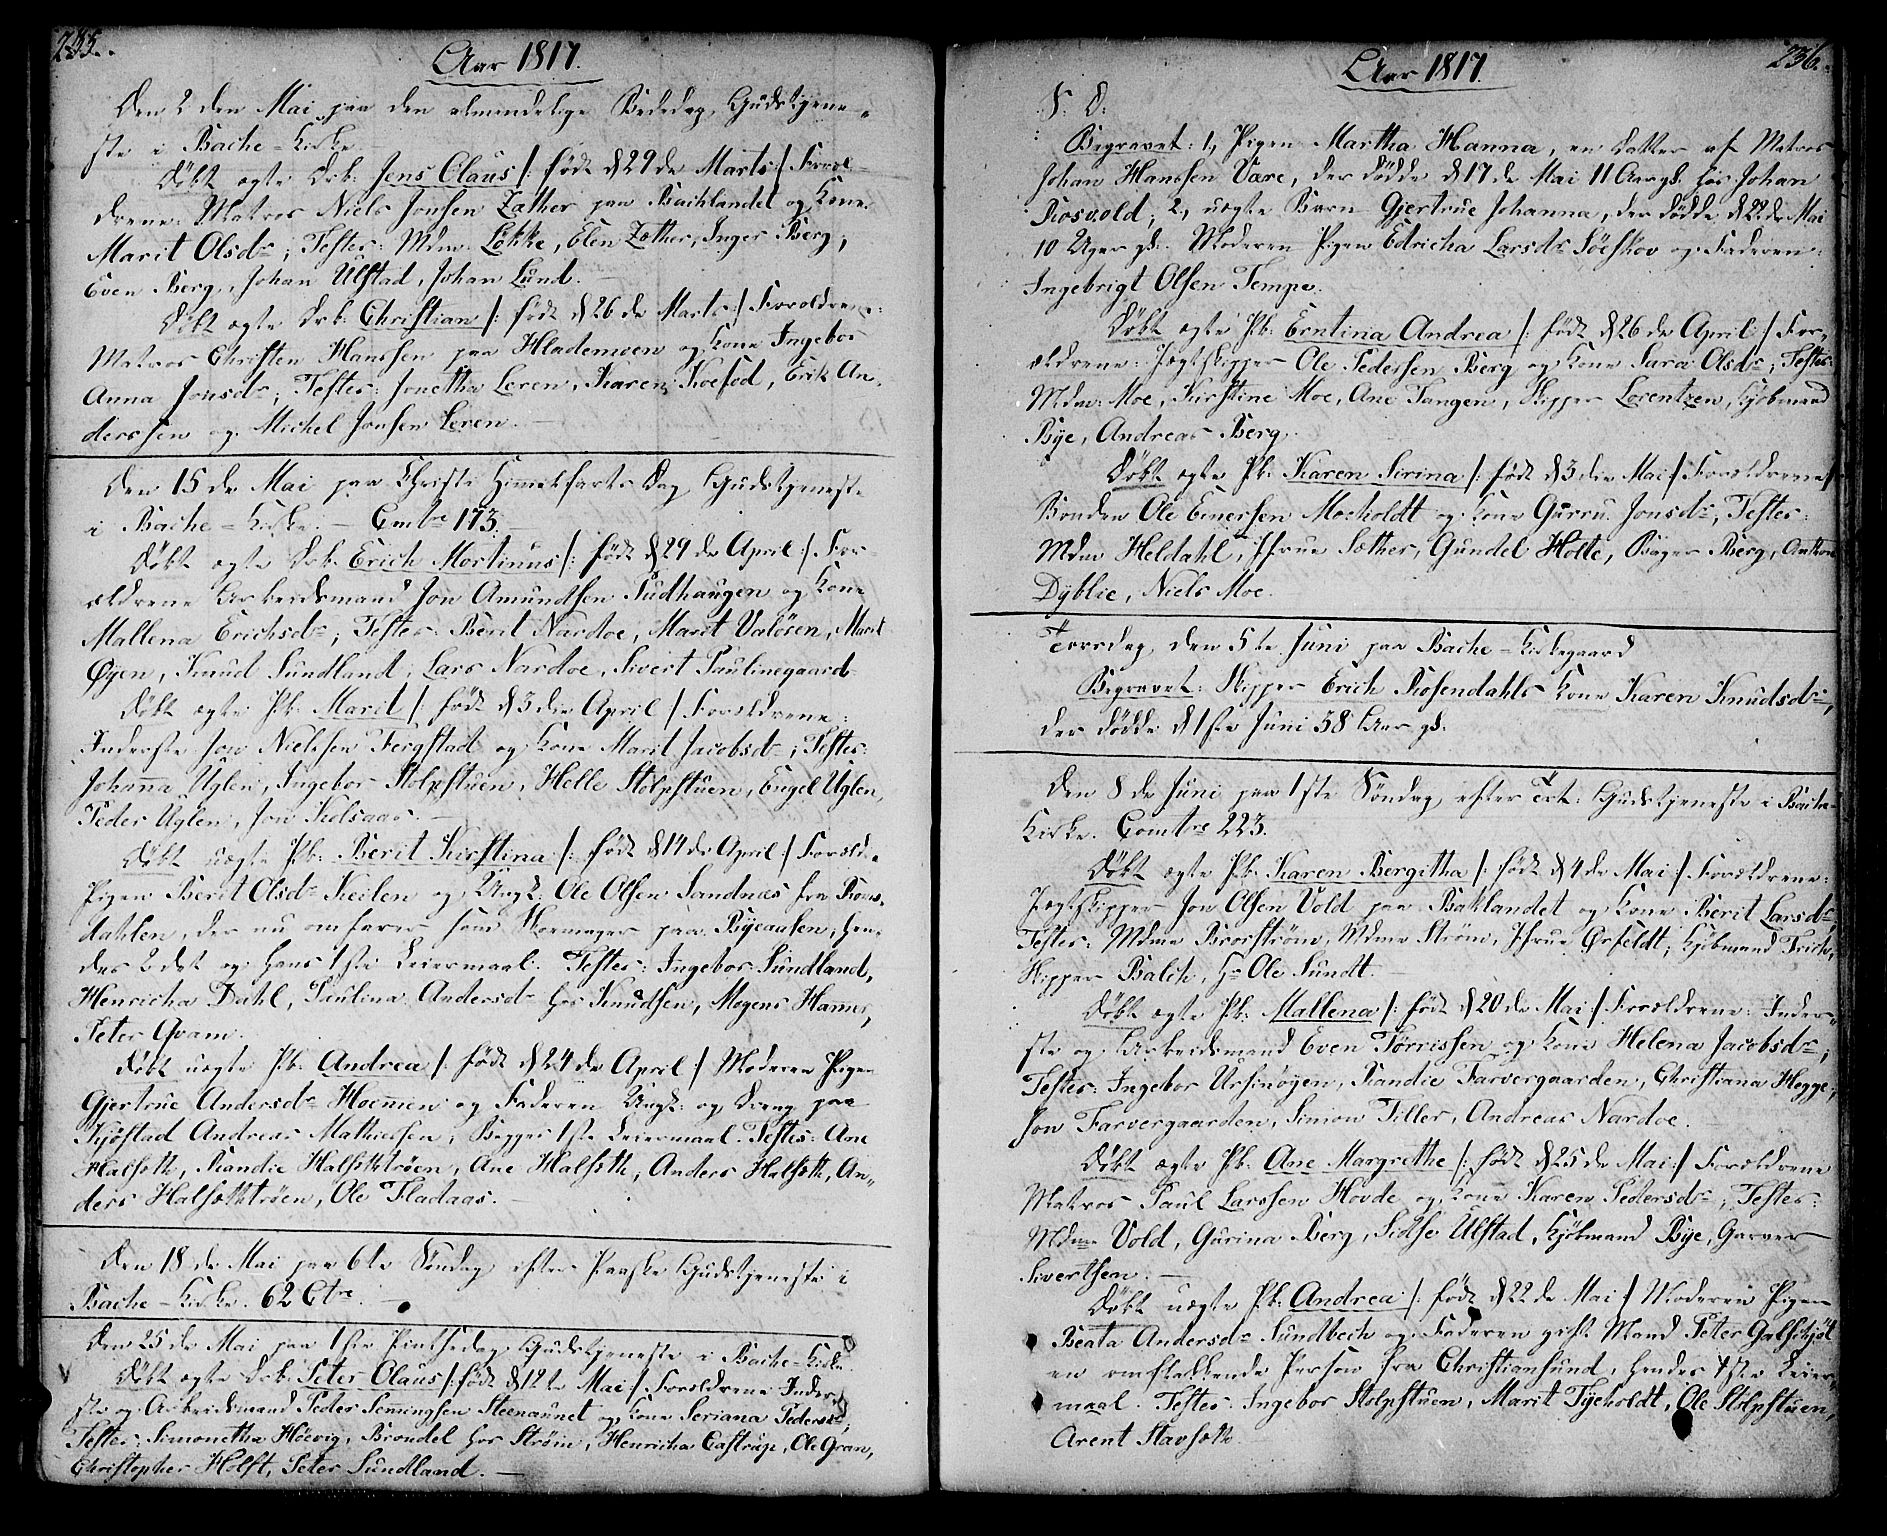 235.
Aar 1817.
Den 2den Mai paa den almindelige Bededag, Gudstjene-
ste i Bache-Kirke.
Døbt ægte Drb: Jens Claus /: født d 29de Marts :/ Foræl-
drene: Matros Niels Jonsen Zæther paa Bachlandet og Kone
Marit Olsdr; Testes: Mdm: Løkke, Elen Zæther, Inger Berg,
Even Berg, Johan Ulstad, Johan Lund.
Døbt ægte Drb: Christian /: født d 26de Marts :/ Forældrene:
Matros Christen Hanssen paa Hlademoen og Kone Ingebor
Anna Jonsdr; Testes: Jonetha Leren, Karen Koefod, Erik An-
derssen og Michel Jonsen Leren.
Den 15de Mai paa Christi Himmelfarts Dag Gudstjeneste
i Bache-Kirke. - Comtre 173.
Døbt ægte Drb: Erich Mortinus /: født d 29de April :/ For-
ældrene Arbeidsmand Jon Amundsen Sudhaugen og Kone
Mallena Erichsdr; Testes: Berit Nardoe, Marit Valøren, Marit
Øyen, Knud Sundland, Lars Nardoe, Sivert Paulinegaard.
Døbt ægte Pb: Marit /: født d 3die April :/ Forældrene:
Inderste Jon Nielssen Fergstad og Kone Marit Jacobsdr; Testes:
Johanna Uglen, Ingebor Stolpstuen, Helle Stolpstuen, Engel Uglen,
Peder Uglen, Jon Kolsaas.
Døbt uægte Pb: Berit Kirstina /: født d 14de April :/ Foræld:
Pigen Berit Olsdr Keilen og Ungk: Ole Olsen Sandnæs fra Roms-
dahlen, der nu omfarer som Kremmer paa Byeaasen, hen-
des 2det og hans 1ste Leiermaal. Testes: Ingebor Sundland,
Henricha Dahl, Paulina Andersdr hos Knudsen, Mogens Hammer,
Peter Qvam.
Døbt uægte Pb: Andrea /: født d 24de April :/ Moderen Pigen
Gjertrue Andersdr Hoemoen og Faderen Ungk: og Dreng paa
Kjøstad Andreas Mathiesen, Begges 1ste Leiermaal. Testes: Ane
Halseth, Randie Halsethtrøen, Ane Halseth, Anders Halseth, An-
ders Halsæthtrøen, Ole Fladaas.
Den 18de Mai paa 6te Søndag efter Paaske Gudstjeneste i
Bache-Kirke. 62 Ctre.
Den 25de Mai paa 1ste Pintsedag Gudstjeneste i Bache-Kirke.
Døbt ægte Drb: Peter Olaus /: født d 12te Mai :/ Forældrene Inder-
ste og Arbeidsmand Peder Semingsen Steenaunet og Kone Seriana Pedersdr;
Testes: Simonetha Høevig, Brondel hos Strøm, Henricha Castrup, Ole Gran,
Christopher Holst, Peter Sundland.
236.
Aar 1817.
S. D:
Begravet: 1, Pigen Martha Hanna, en Datter af Matros
Johan Hanssen Være, der døde d 17de Mai 11 Aar gl. hos Johan
Rosvold; 2, uægte Barn Gjertrue Johanna, der døde d 22de Mai
10 Uger gl. Moderen Pigen Edricha Larsdr Søeskov og Faderen:
Ingebrigt Olsen Tempe.
Døbt ægte Pb: Erntina Andrea /: født d 26de April :/ For-
ældrene: Jægtskipper Ole Pederssen Berg og Kone Sara Olsdr; Testes:
Mdm: Moe, Kirstine Moe, Ane Tangen, Skipper Lorentzen, Kjøbmand
Bye, Andreas Berg.
Døbt ægte Pb: Karen Sirina /: født d 3die Mai :/ Forældrene
Bonden Ole Einersen Moholdt og Kone Gurru Jonsdr; Testes:
Mdm Heldahl, Jfrue Sæther, Gundel Holte, Bager Berg,
Dyblie, Niels Moe.
Torsdag den 5te Juni paa Bache-Kirkegaard
Begravet: Skipper Erich Rosendahls Kone Karen Knudsdr,
der døde d 1ste Juni 58 Aar gl.
Den 8de Juni paa 1ste Søndag efter Trt: Gudstjeneste i Bache-
Kirke. Comtre 223.
Døbt ægte Pb: Karen Bergitha /: født d 4de Mai :/ Forældrene:
Jægtskipper Jon Olsen Vold paa Baklandet og Kone Berit Larsdr,
Testes: Mdme Brorstrøm, Mdme Strøm, Jfrue Ørfeldt, Kjøbmand Trich,
Skipper Balch, Hr Ole Sundt.
Døbt ægte Pb: Mallena /: født d 20de Mai :/ Forældrene: Inder-
ste og Arbeidsmand Even Tørrissen og Kone Helena Jacobsdr;
Testes: Ingebor Ursinøyen, Randie Farvergaarden, Christiana Hegge,
Jon Farvergaarden, Simon Tiller, Andreas Nardoe.
Døbt ægte Pb: Ane Margrethe /: født d 25de Mai :/ Forældrene
Matros Paul Larssen Hovde og Kone Karen Pedersdr; Testes:
Mdme Vold, Gurina Berg, Sidse Ulstad, Kjøbmand Bye, Garver
Sivertsen.
Døbt uægte Pb: Andrea /: født d 22de Mai :/ Moderen Pigen
Beata Andersdr Sundbech og Faderen gift Mand Peter Galschjøt
en omflakkende Person fra Christiansund, hendes 1ste Leier-
maal. Testes: Ingebor Stolpstuen, Marit Tyeholdt, Ole Stolpstuen,
Arent Stavseth.